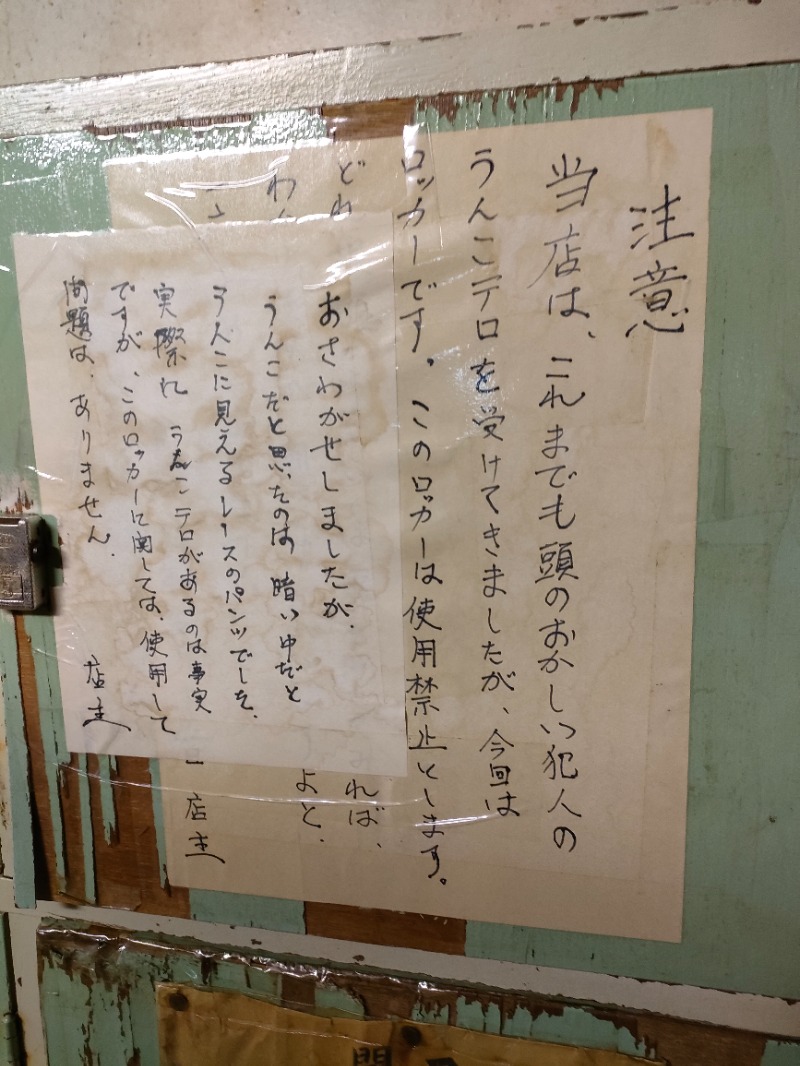 注意
当店は、これまでも頭のおかしい犯人の
うんこテロを受けてきましたが、今回は
ロッカーです。このロッカーは使用禁止とします。
どれ
れば、
わ
よと、
店主
おさわがせしましたが、
うんこだと思ったのは、暗い中だと
うんこに見えるレースのパンツでした。
実際に、うんこテロがあるのは事実
ですが、このロッカーに関しては、使用して
問題は、ありません。
店主